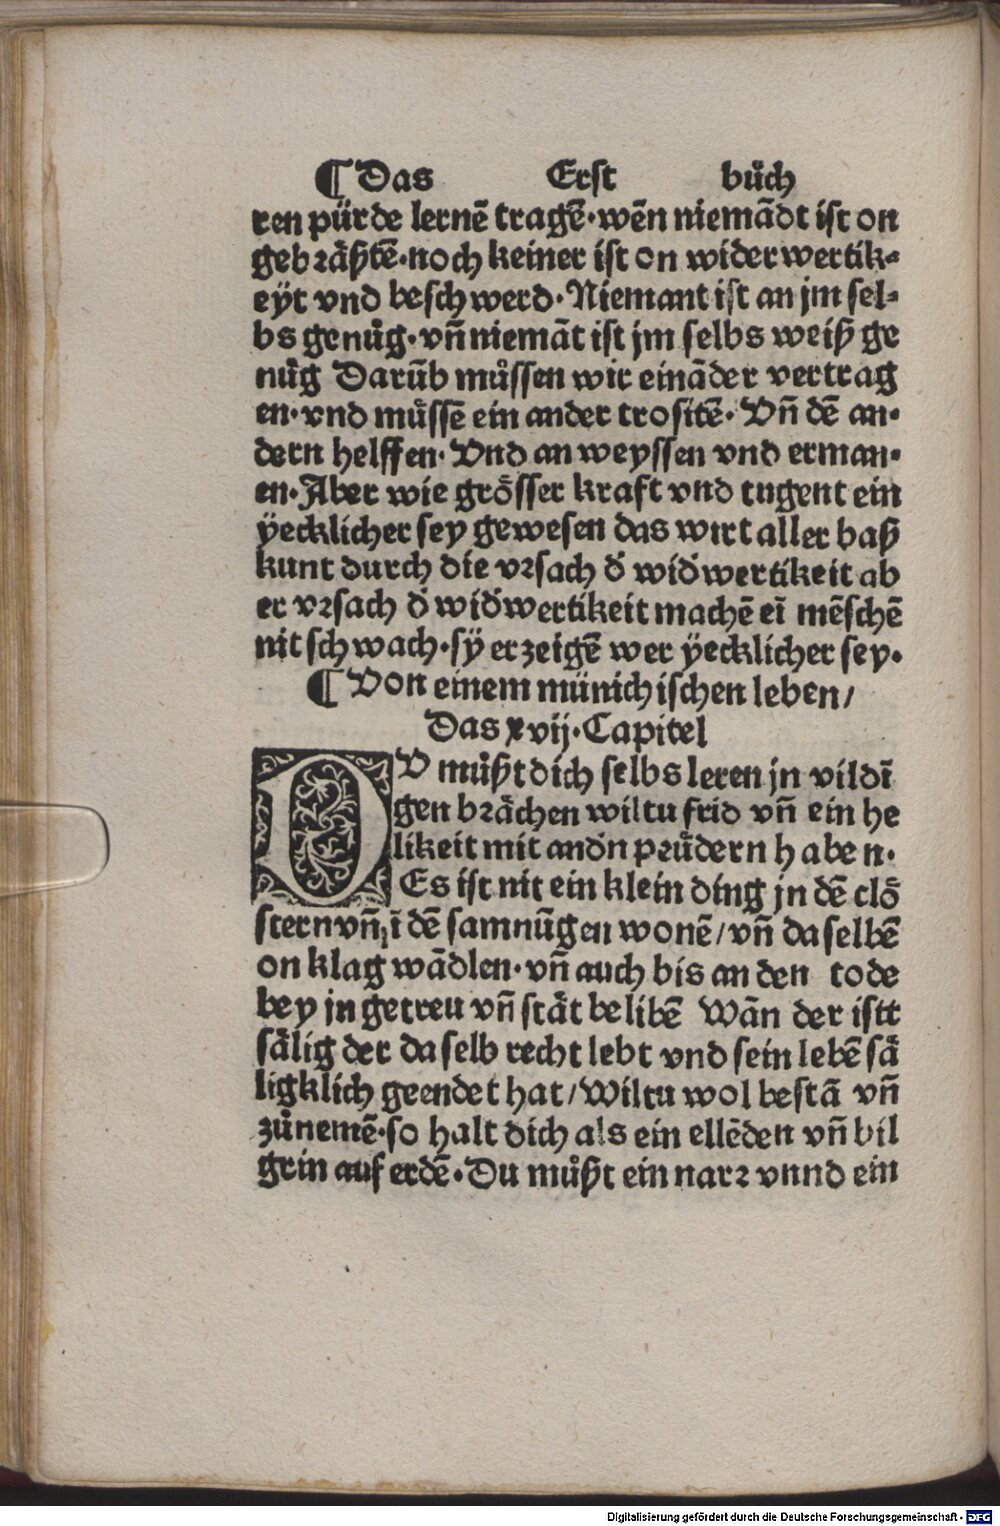 ¶ Das Erst bůch
ren pürde lernē tragē·wēn niemādt ist on
gebräßtē·noch keiner ist on widerwertik⸗
eyt vnd beschwerd·Niemant ist an jm sel⸗
bs genůg·vn̄ niemāt ist jm selbs weiß ge
nůg Darūb můssen wir eināder vertrag
en·vnd můssē ein ander trositē·Vn̄ dē an⸗
dern helffen·Vnd an weyssen vnd erman⸗
en·Aber wie grösser kraft vnd tugent ein
ÿecklicher sey gewesen das wirt aller baß
kunt durch die vrsach d̄ wid̄wertikeit ab
er vrsach d̄ wid̄wertikeit machē eī mēschē
nit schwach·sÿ erzeigē wer ÿecklicher sey·
¶ Von einem münichischen leben/
Das xvij·Capitel
DV můßt dich selbs leren jn vildī
gen brächen wiltu frid vn̄ ein he
likeit mit andn̄ průdern haben·
Es ist nit ein klein ding jn dē clö
stern vn̄ ī dē samnūgen wonē/vn̄ daselbē
on klag wādlen·vn̄ auch bis an den tode
bey jn getreu vn̄ stät belibē Wān der istt
sälig der da selb recht lebt vnd sein lebē sä
ligklich geendet hat/Wiltu wol bestā vn̄
zůnemē·so halt dich als ein ellēden vn̄ bil
grin auf erdē·Du můßt ein narr vnnd ein
Digitalisierung gefördert durch die Deutsche Forschungsgemeinschaft - DFG